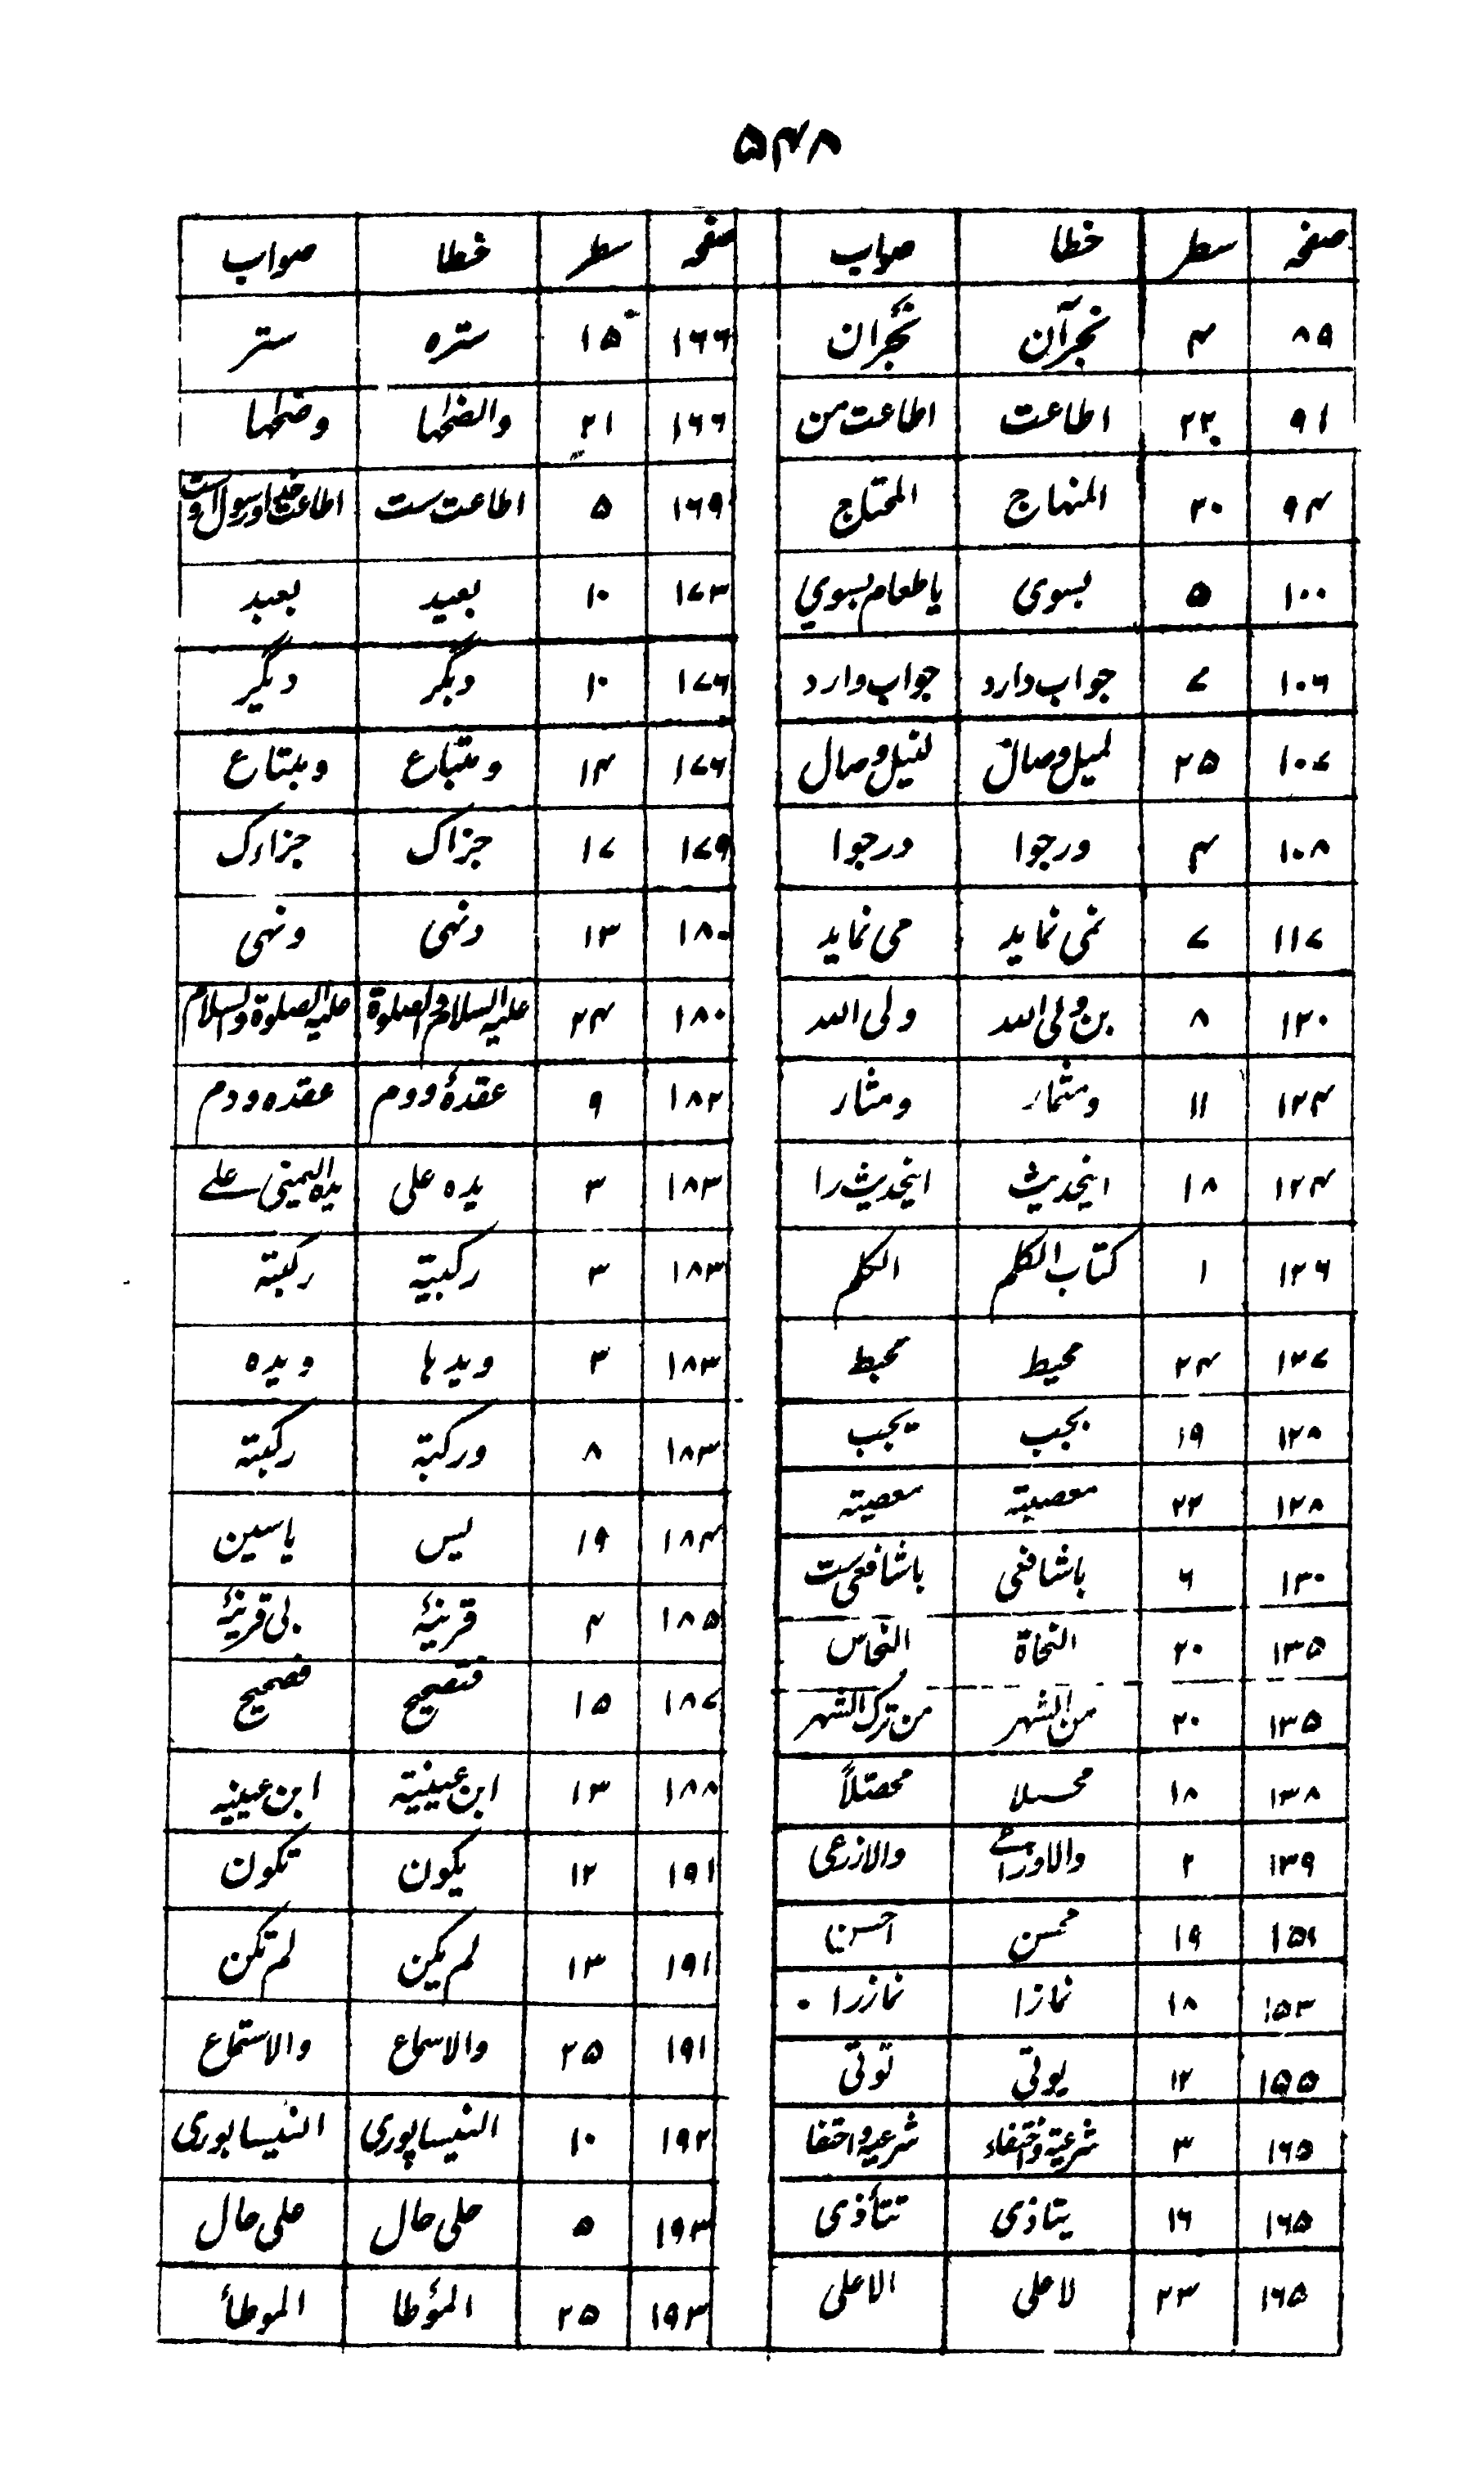 ۵۴۸
صفحہ سطر خطا صواب
۸۵ ۴ نجرآن نجران
۹۱ ۲۲ اطاعت اطاعت من
۹۴ ۲۰ المنهاج المحتاج
۱۰۰ ۵ بسوی یا طعام بسوی
۱۰۶ ۷ جواب دارد جواب وارد
۱۰۷ ۲۵ لمیل وصال لنیل وصال
۱۰۸ ۴ ورجوا درجوا
۱۱۷ ۷ نمی نماید می نماید
۱۲۰ ۸ بن ولی الله ولی الله
۱۲۴ ۱۱ ومثمار ومثار
۱۲۴ ۱۸ اینحدیث اینحدیث را
۱۲۶ ۱ کتاب الکلم الکلم
۱۲۷ ۲۴ محیط محبط
۱۲۸ ۱۹ بجب یجب
۱۲۸ ۲۲ معصیبتہ معصیتہ
۱۳۰ ۶ باشافعی باشافعی ست
۱۳۵ ۲۰ النحاة النحاس
۱۳۵ ۲۰ من الشہر من ترک الشہر
۱۳۸ ۱۸ محسلا محصّلاً
۱۳۹ ۲ والاوزاعے والازرعی
۱۵۱ ۱۹ محسن احسن
۱۵۳ ۱۸ نمازا نمازرا
۱۵۵ ۱۲ یوتی توتی
۱۶۵ ۳ شرعیة واختفاء شرعیہ واختفا
۱۶۵ ۱۶ یتاذی تتأذی
۱۶۵ ۲۳ لاعلی الاعلی
صفحہ سطر خطا صواب
۱۶۶ ۱۵ سترہ ستر
۱۶۶ ۲۱ والضحٰها وضحٰها
۱۶۹ ۵ اطاعت ست اطاعت خدا ورسول اوست
۱۷۳ ۱۰ بعید بعبد
۱۷۶ ۱۰ دبگر دیگر
۱۷۶ ۱۴ ومتباع ومبتاع
۱۷۹ ۱۷ جزاک جزاءک
۱۸۰ ۱۳ دنهی ونهی
۱۸۰ ۲۴ علیہ السلام والصلوة علیہ الصلوة والسلام
۱۸۲ ۹ عقدۂ ودم عقدہ ودم
۱۸۳ ۳ یدہ علی یدہ الیمنی علے
۱۸۳ ۳ رکبیتہ رکبتہ
۱۸۳ ۳ ویدہا ویدہ
۱۸۳ ۸ ورکبتہ رکبتہ
۱۸۴ ۱۹ یس یاسین
۱۸۵ ۴ قرینۂ بی قرینۂ
۱۸۷ ۱۵ فتصحیح فصحیح
۱۸۸ ۱۳ ابن عیینیتہ ابن عیینہ
۱۹۱ ۱۲ یکون تکون
۱۹۱ ۱۳ لم یکن لم تکن
۱۹۱ ۲۵ والاسماع والاستماع
۱۹۲ ۱۰ النیساپوری النیسابوری
۱۹۳ ۵ حلی حال علی حال
۱۹۳ ۲۵ المؤطا الموطأ